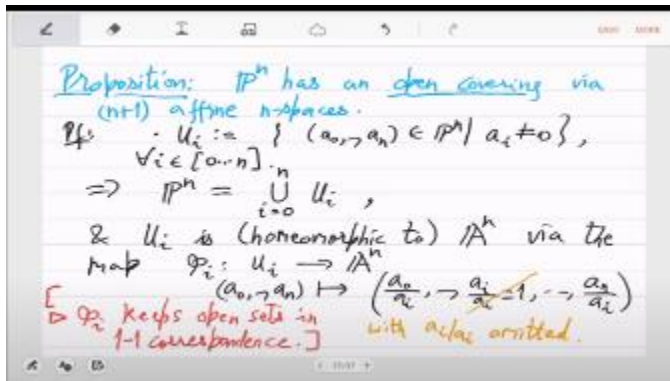 Proposition: ℙⁿ has an open covering via
(n+1) affine n-spaces.
Pf: · U_i := { (a_0,⇁a_n) ∈ ℙⁿ | a_i ≠ 0 },
∀i ∈ [0...n].
=> ℙⁿ = ⋃_{i=0}^{n} U_i ,
& U_i is (homeomorphic to) 𝔸ⁿ via the
map φ_i : U_i → 𝔸ⁿ
(a_0,⇁a_n) ↦ (a_0/a_i, ⇁ a_i/a_i = 1, --, a_n/a_i)
with a_i/a_i omitted.
[ ▷ φ_i keeps open sets in
1-1 correspondence. ]
SAVE MORE